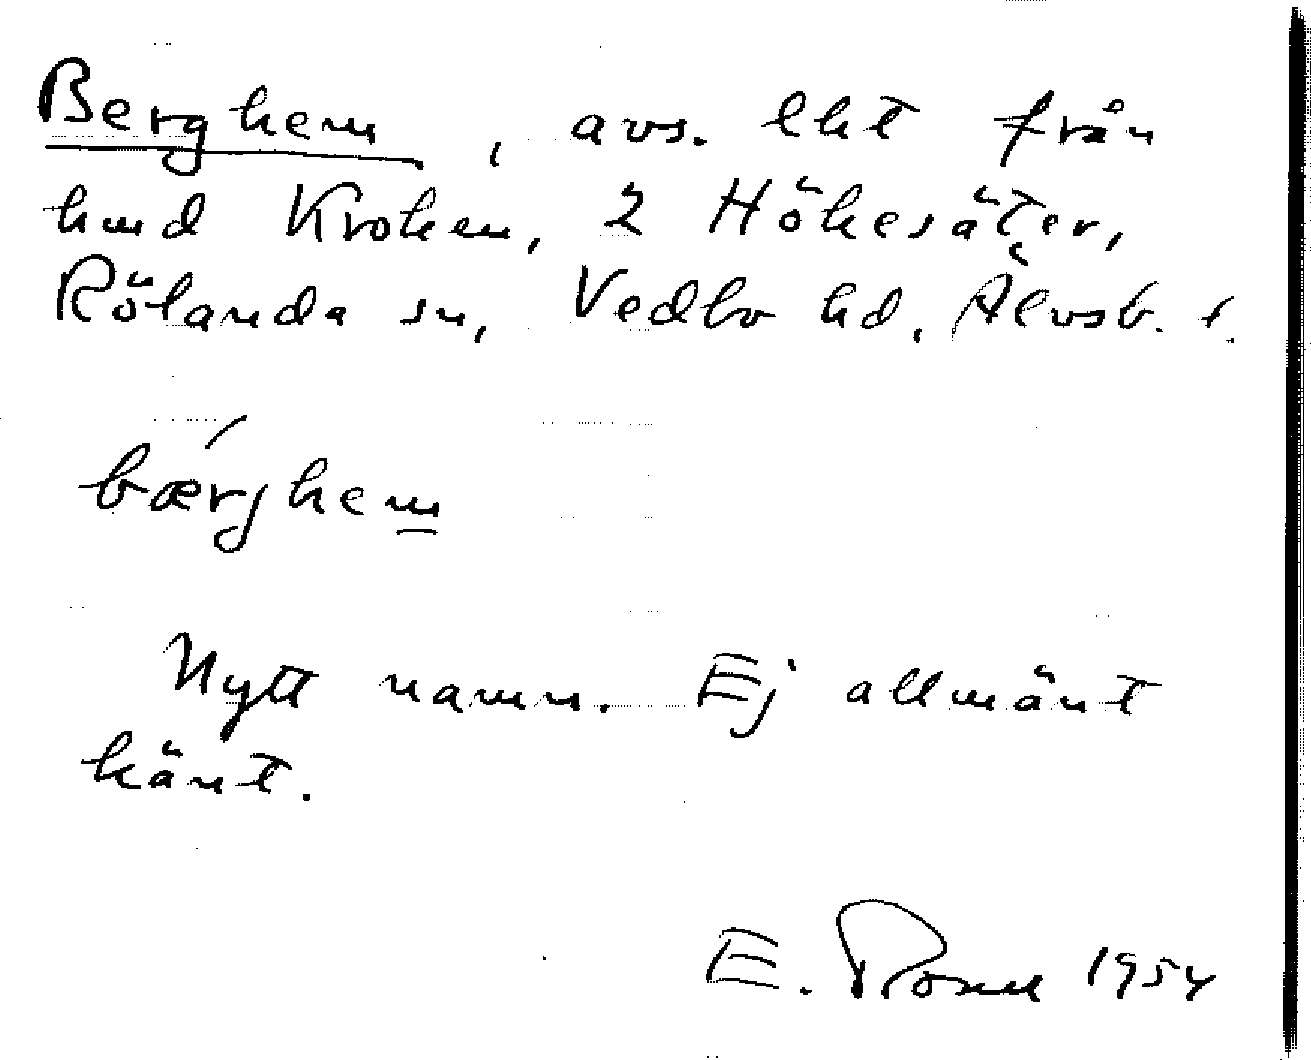 Berghem, avs. lht från
hmd Kroken, 2 Hökesäter,
Rölanda sn, Vedbo hd, Älvsb. l.
bærghem
Nytt namn. Ej allmänt
känt.
E. 1954